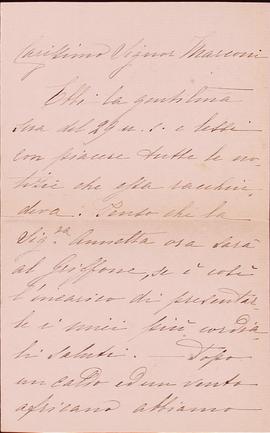 Carissimo Signor Marconi
Ebbi la gentilima
sua del 29 u. s. e lessi
con piacere tutte le no-
tizie che essa racchiu-
deva. Penso che la
Sig.ra Annetta ora sarà
al Griffone, se è così
l'incarico di presentar-
le i miei più cordia-
li saluti. — Dopo
un caldo ed un vento
africano abbiamo